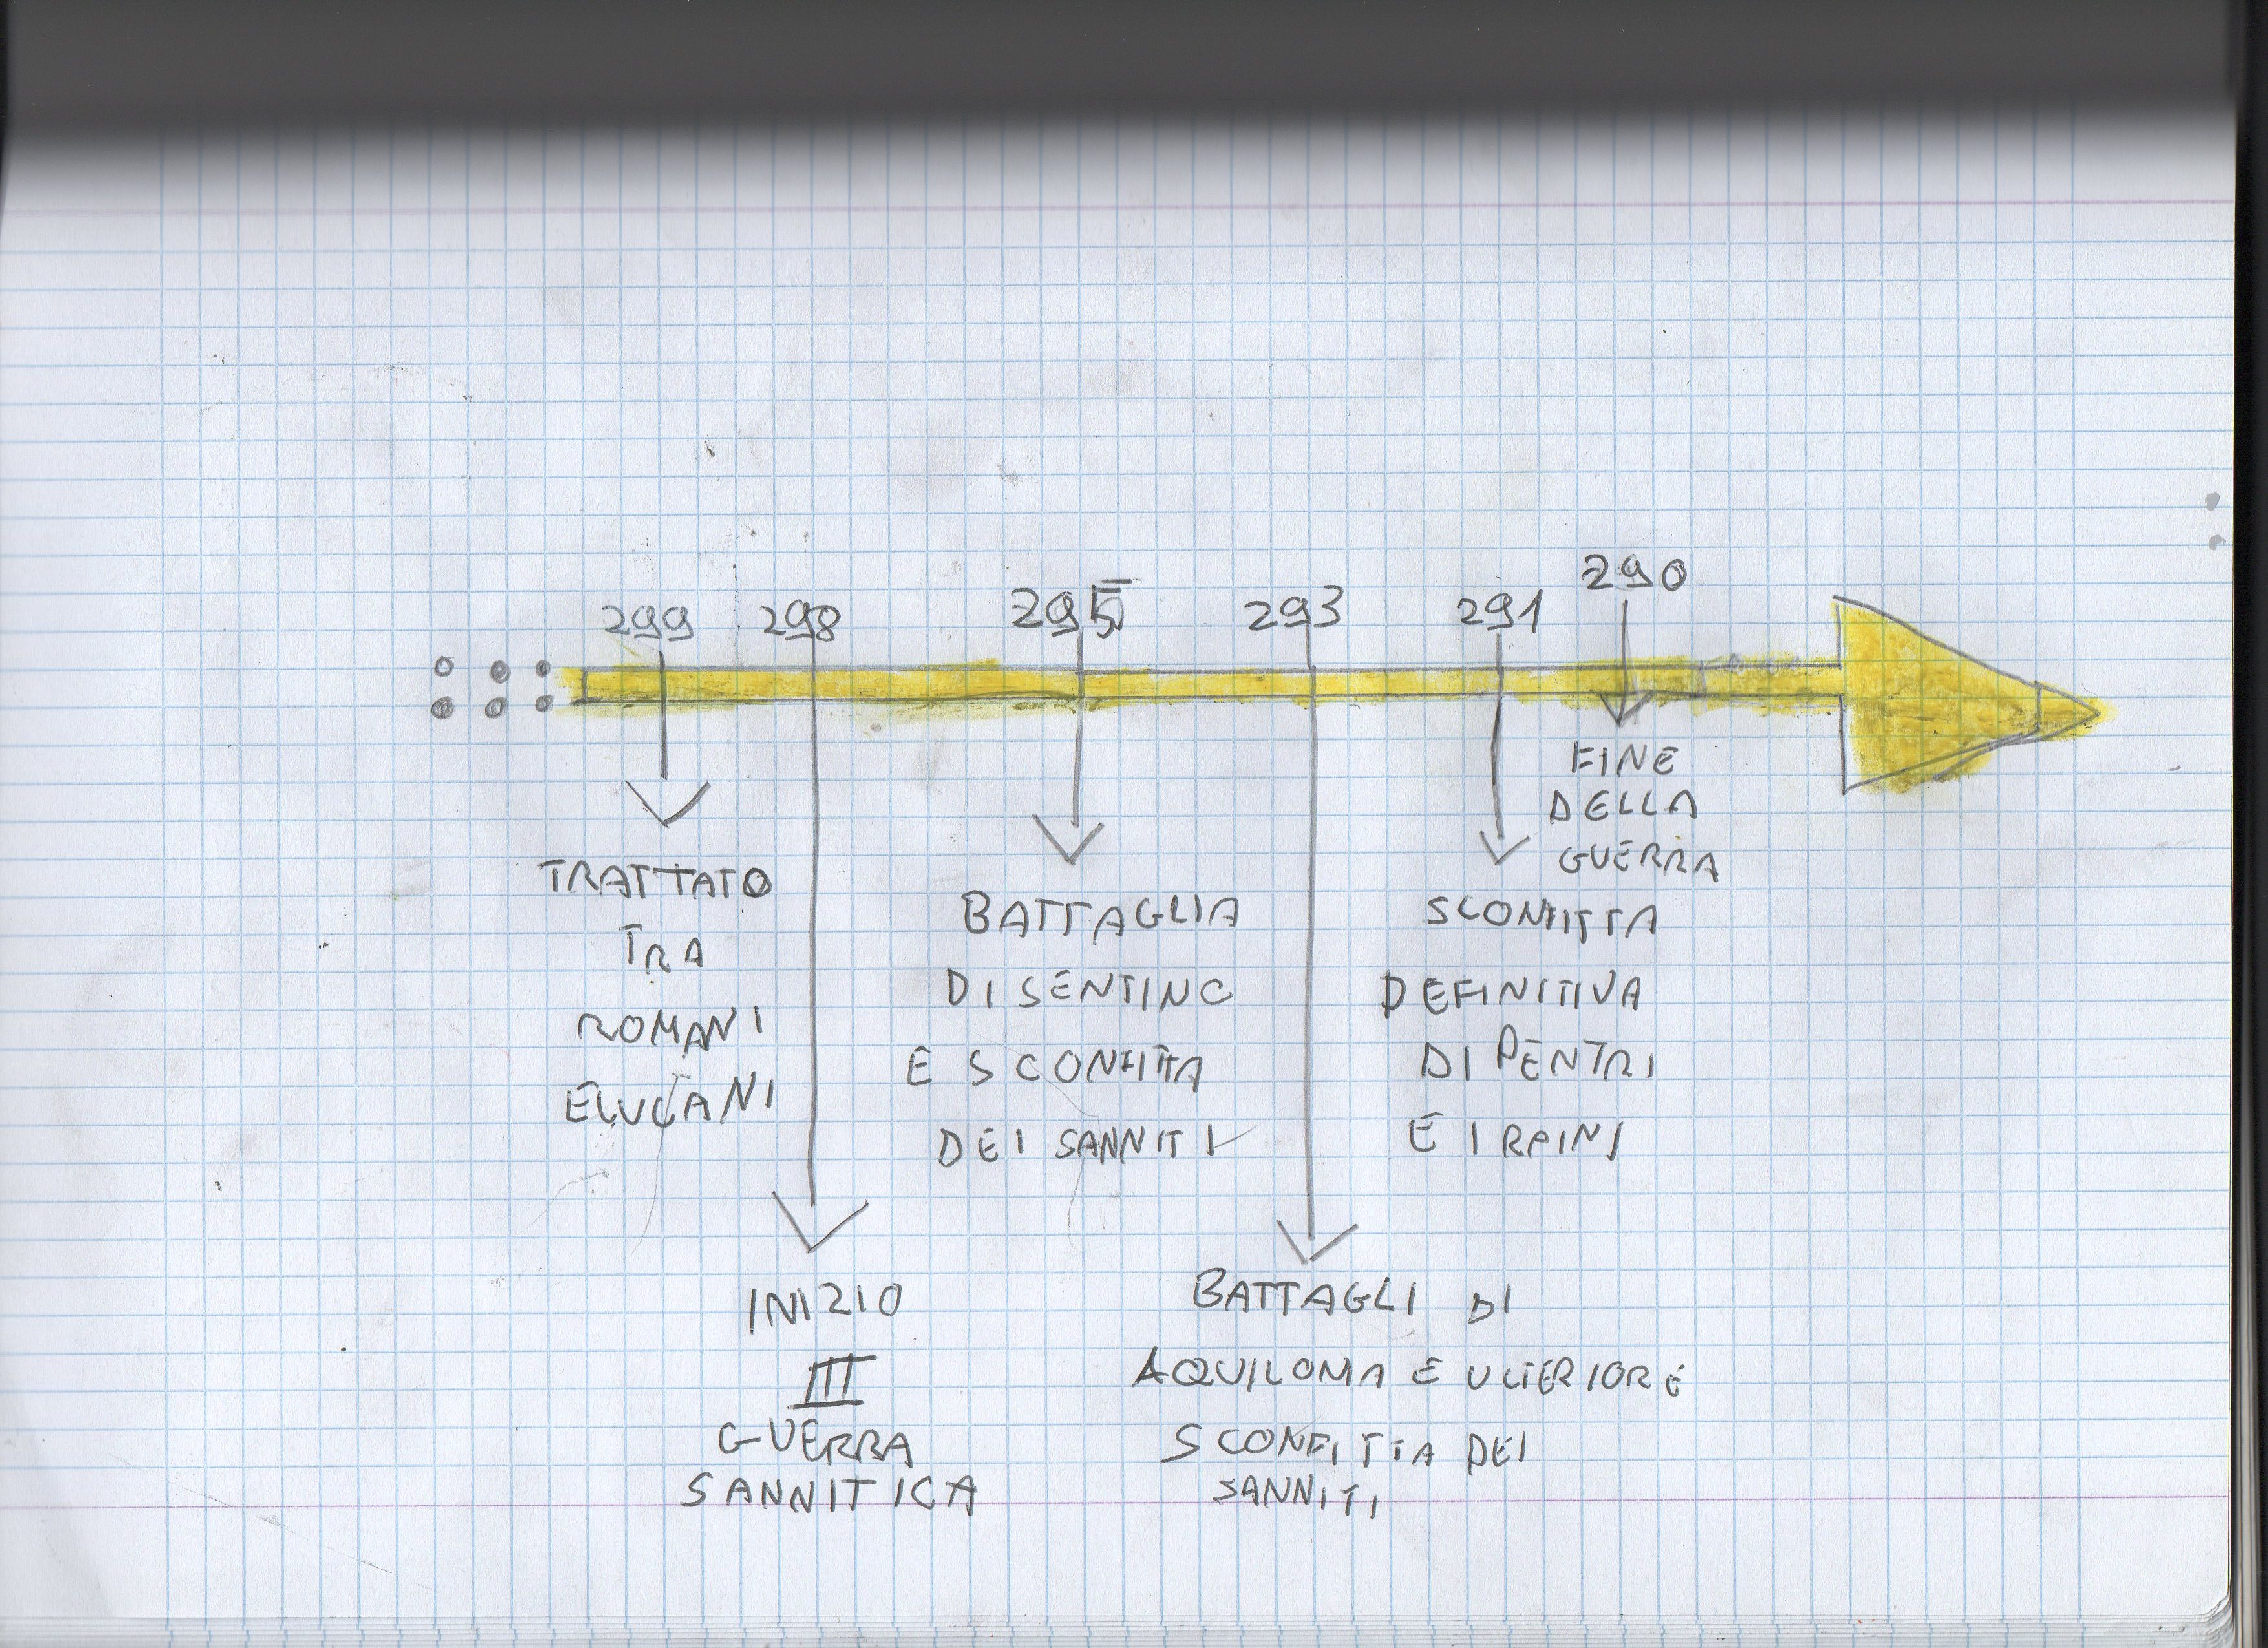 299 298 295 293 291 290
TRATTATO
TRA
ROMANI
E LUCANI
INIZIO
III
GUERRA
SANNITICA
BATTAGLIA
DI SENTINO
E SCONFITTA
DEI SANNITI
BATTAGLI DI
AQUILONIA E ULTERIORE
SCONFITTA DEI
SANNITI
SCONFITTA
DEFINITIVA
DI PENTRI
E IRPINI
FINE
DELLA
GUERRA